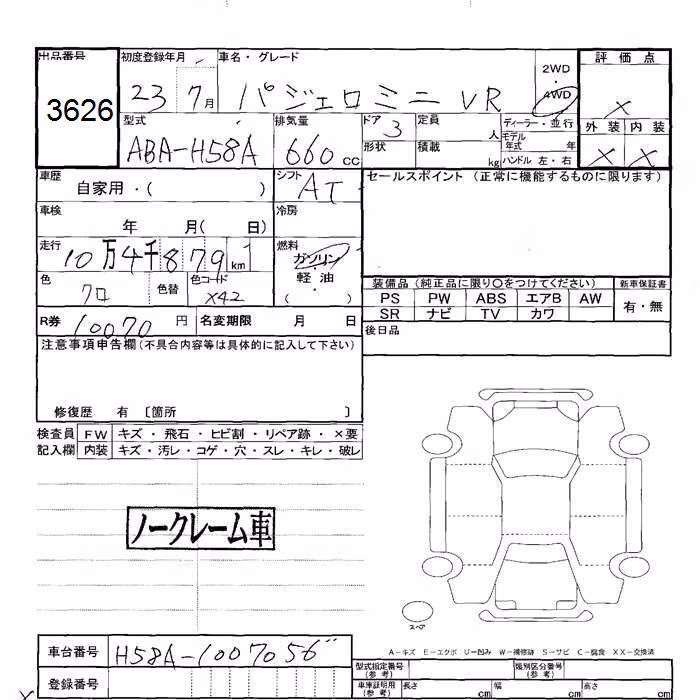 出品番号 初度登録年月 車名・グレード 2WD 評価点
3626 23 7月 パジェロミニ VR 4WD X
型式 排気量 ドア 定員 ディーラー・並行 外装 内装
ABA-H58A 660cc 3 人 モデル年式 年 X X
形状 積載 kg ハンドル 左・右
車歴 シフト セールスポイント (正常に機能するものに限ります)
自家用・( ) AT
車検 冷房
年 月( 日)
走行 燃料
10万4千879km ガソリン
軽油
色 色替 色コード ( )
クロ X42 装備品 (純正品に限り〇をつけてください) 新車保証書
PS PW ABS エアB AW 有・無
R券 10070円 名変期限 月 日 SR ナビ TV カワ
後日品
注意事項申告欄(不具合内容等は具体的に記入して下さい)
修復歴 有 〔箇所 〕
検査員 FW キズ・飛石・ヒビ割・リペア跡・×要
記入欄 内装 キズ・汚レ・コゲ・穴・スレ・キレ・破レ
ノークレーム車
スペア
A-キズ E-エクボ U-凹み W-補修跡 S-サビ C-腐食 XX-交換済
車台番号 H58A-1007056"
型式指定番号(参考) 類別区分番号(参考)
登録番号 車庫証明用(参考) 長さ cm 幅 cm 高さ cm